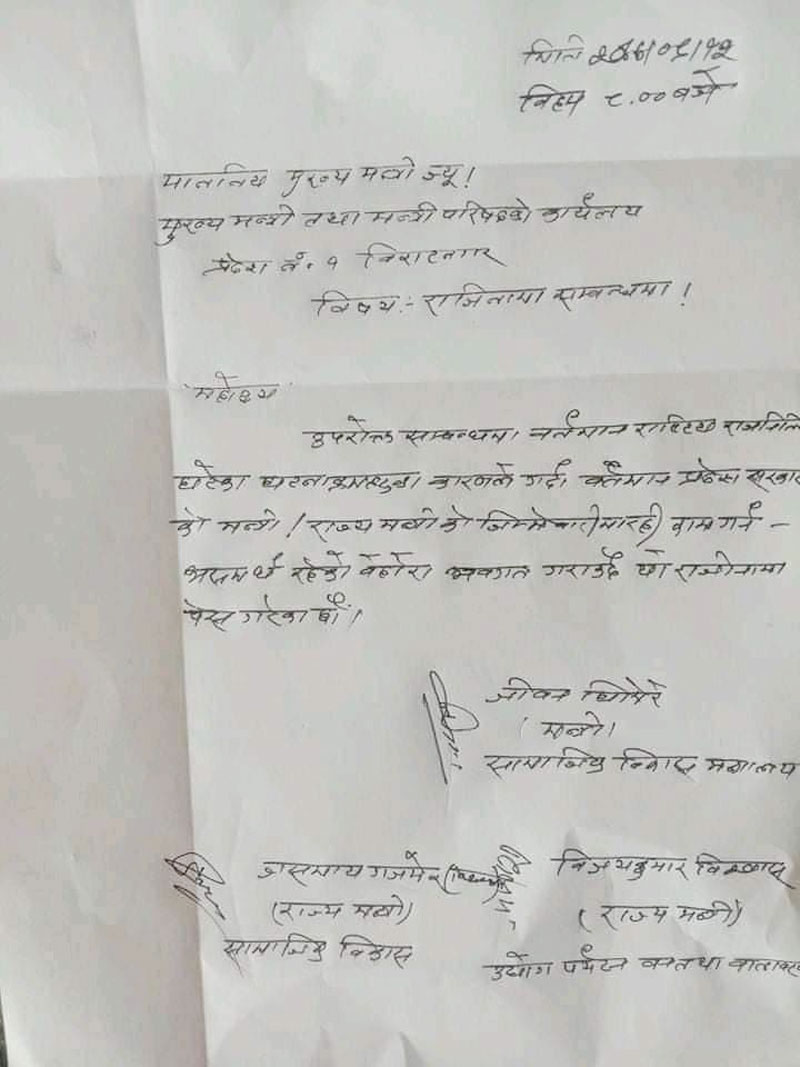 मिति २०७७/०९/१२
विहान ८.०० बजे
माननिय मुख्य मन्त्री ज्यू!
मुख्य मन्त्री तथा मन्त्री परिषदको कार्यलय
प्रदेश नं. १ विराटनगर
विषय:- राजिनामा सम्बन्धमा!
महोदय
उपरोक्त सम्बन्धमा वर्तमान राष्ट्रिय राजनिति
घटेका घटनाक्रमहरुका कारणले गर्दा वर्तमान प्रदेस सरकार
को मन्त्री / राज्य मन्त्री को जिम्मेवारीमा रही काम गर्न -
असमर्थ रहेको वेहोरा अवगत गराउदै यो राजीनामा
पेस गरेका छौं।
जीवन घिमिरे
(मन्त्री)
सामाजिक विकास मन्त्रालय
जसमाय गजमेर
(राज्य मन्त्री)
सामाजिक विकास
विजयकुमार विश्वास
(राज्य मन्त्री)
उद्योग पर्यटन वन तथा वातावरण